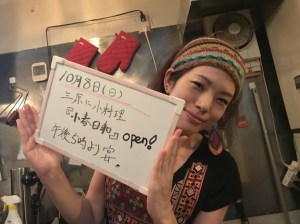 10月8日(日)
三原に小料理
『小春日和』open!
午後5時より宴。